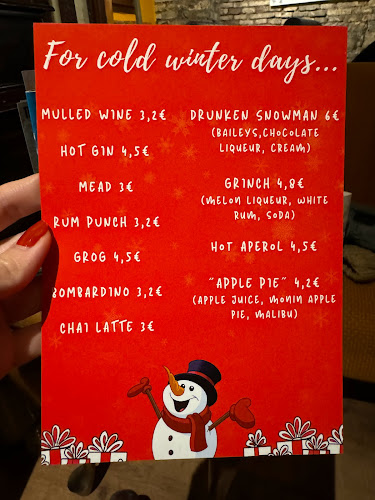 For cold winter days...
MULLED WINE 3,2€
HOT GIN 4,5€
MEAD 3€
RUM PUNCH 3,2€
GROG 4,5€
BOMBARDINO 3,2€
CHAI LATTE 3€
DRUNKEN SNOWMAN 6€
(BAILEYS,CHOCOLATE
LIQUEUR, CREAM)
GRINCH 4,8€
(MELON LIQUEUR, WHITE
RUM, SODA)
HOT APEROL 4,5€
"APPLE PIE" 4,2€
(APPLE JUICE, MONIN APPLE
PIE, MALIBU)